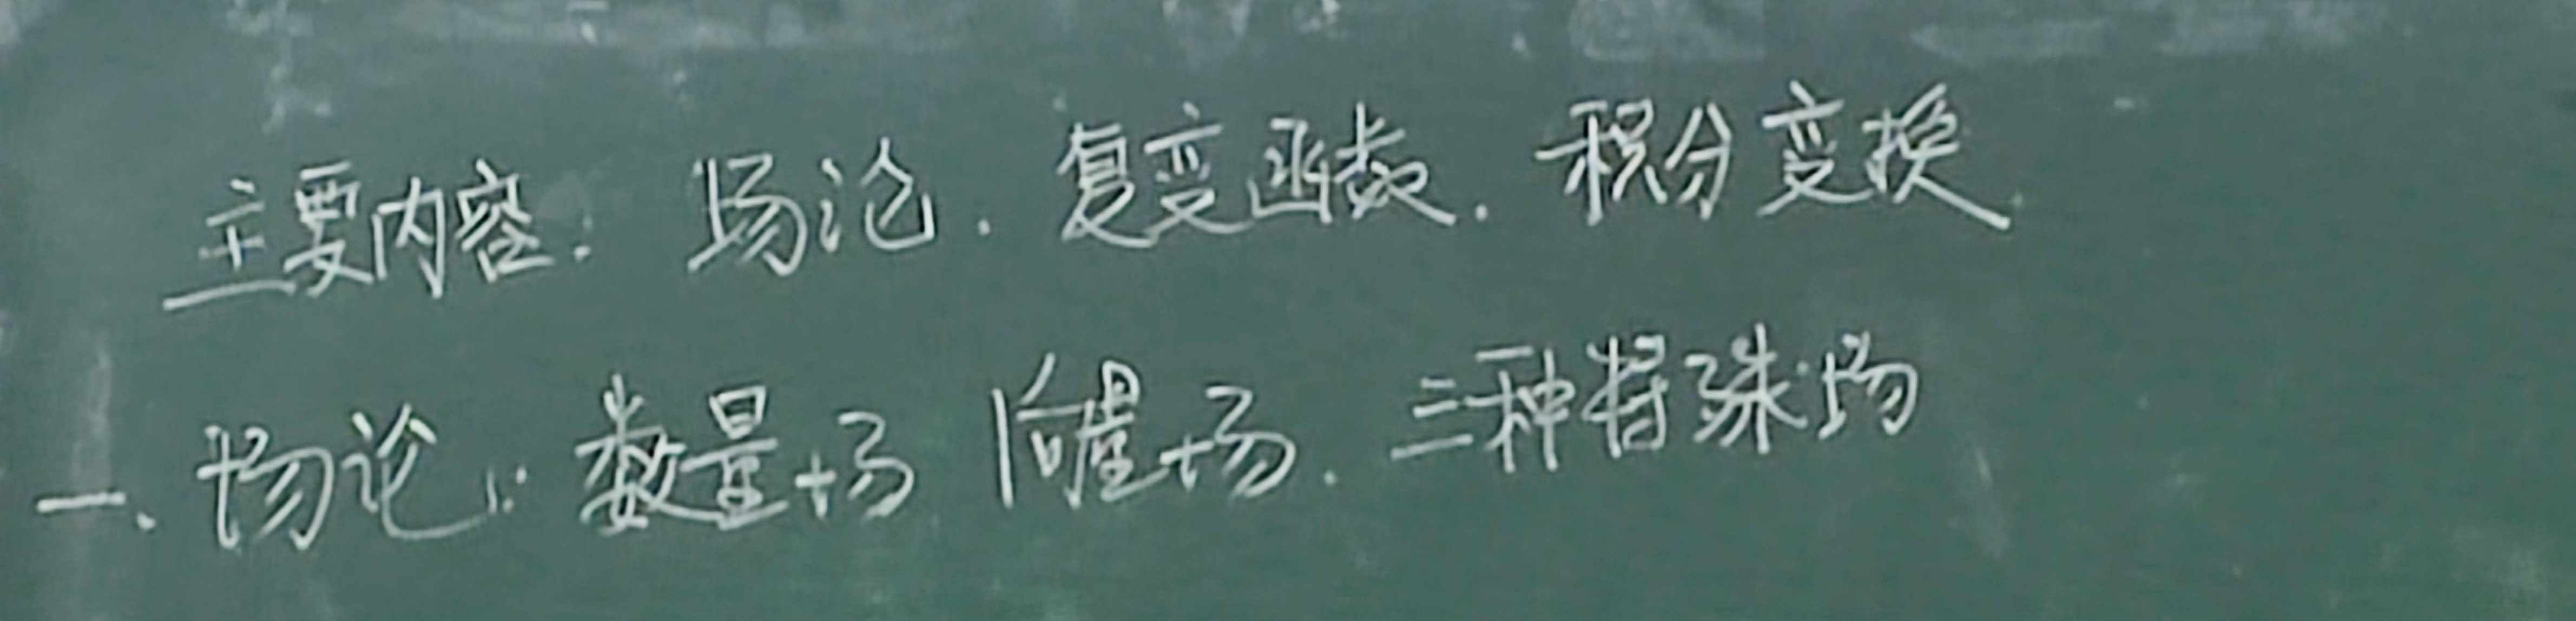 主要内容: 场论. 复变函数. 积分变换.
一、场论: 数量场 向量场. 三种特殊场